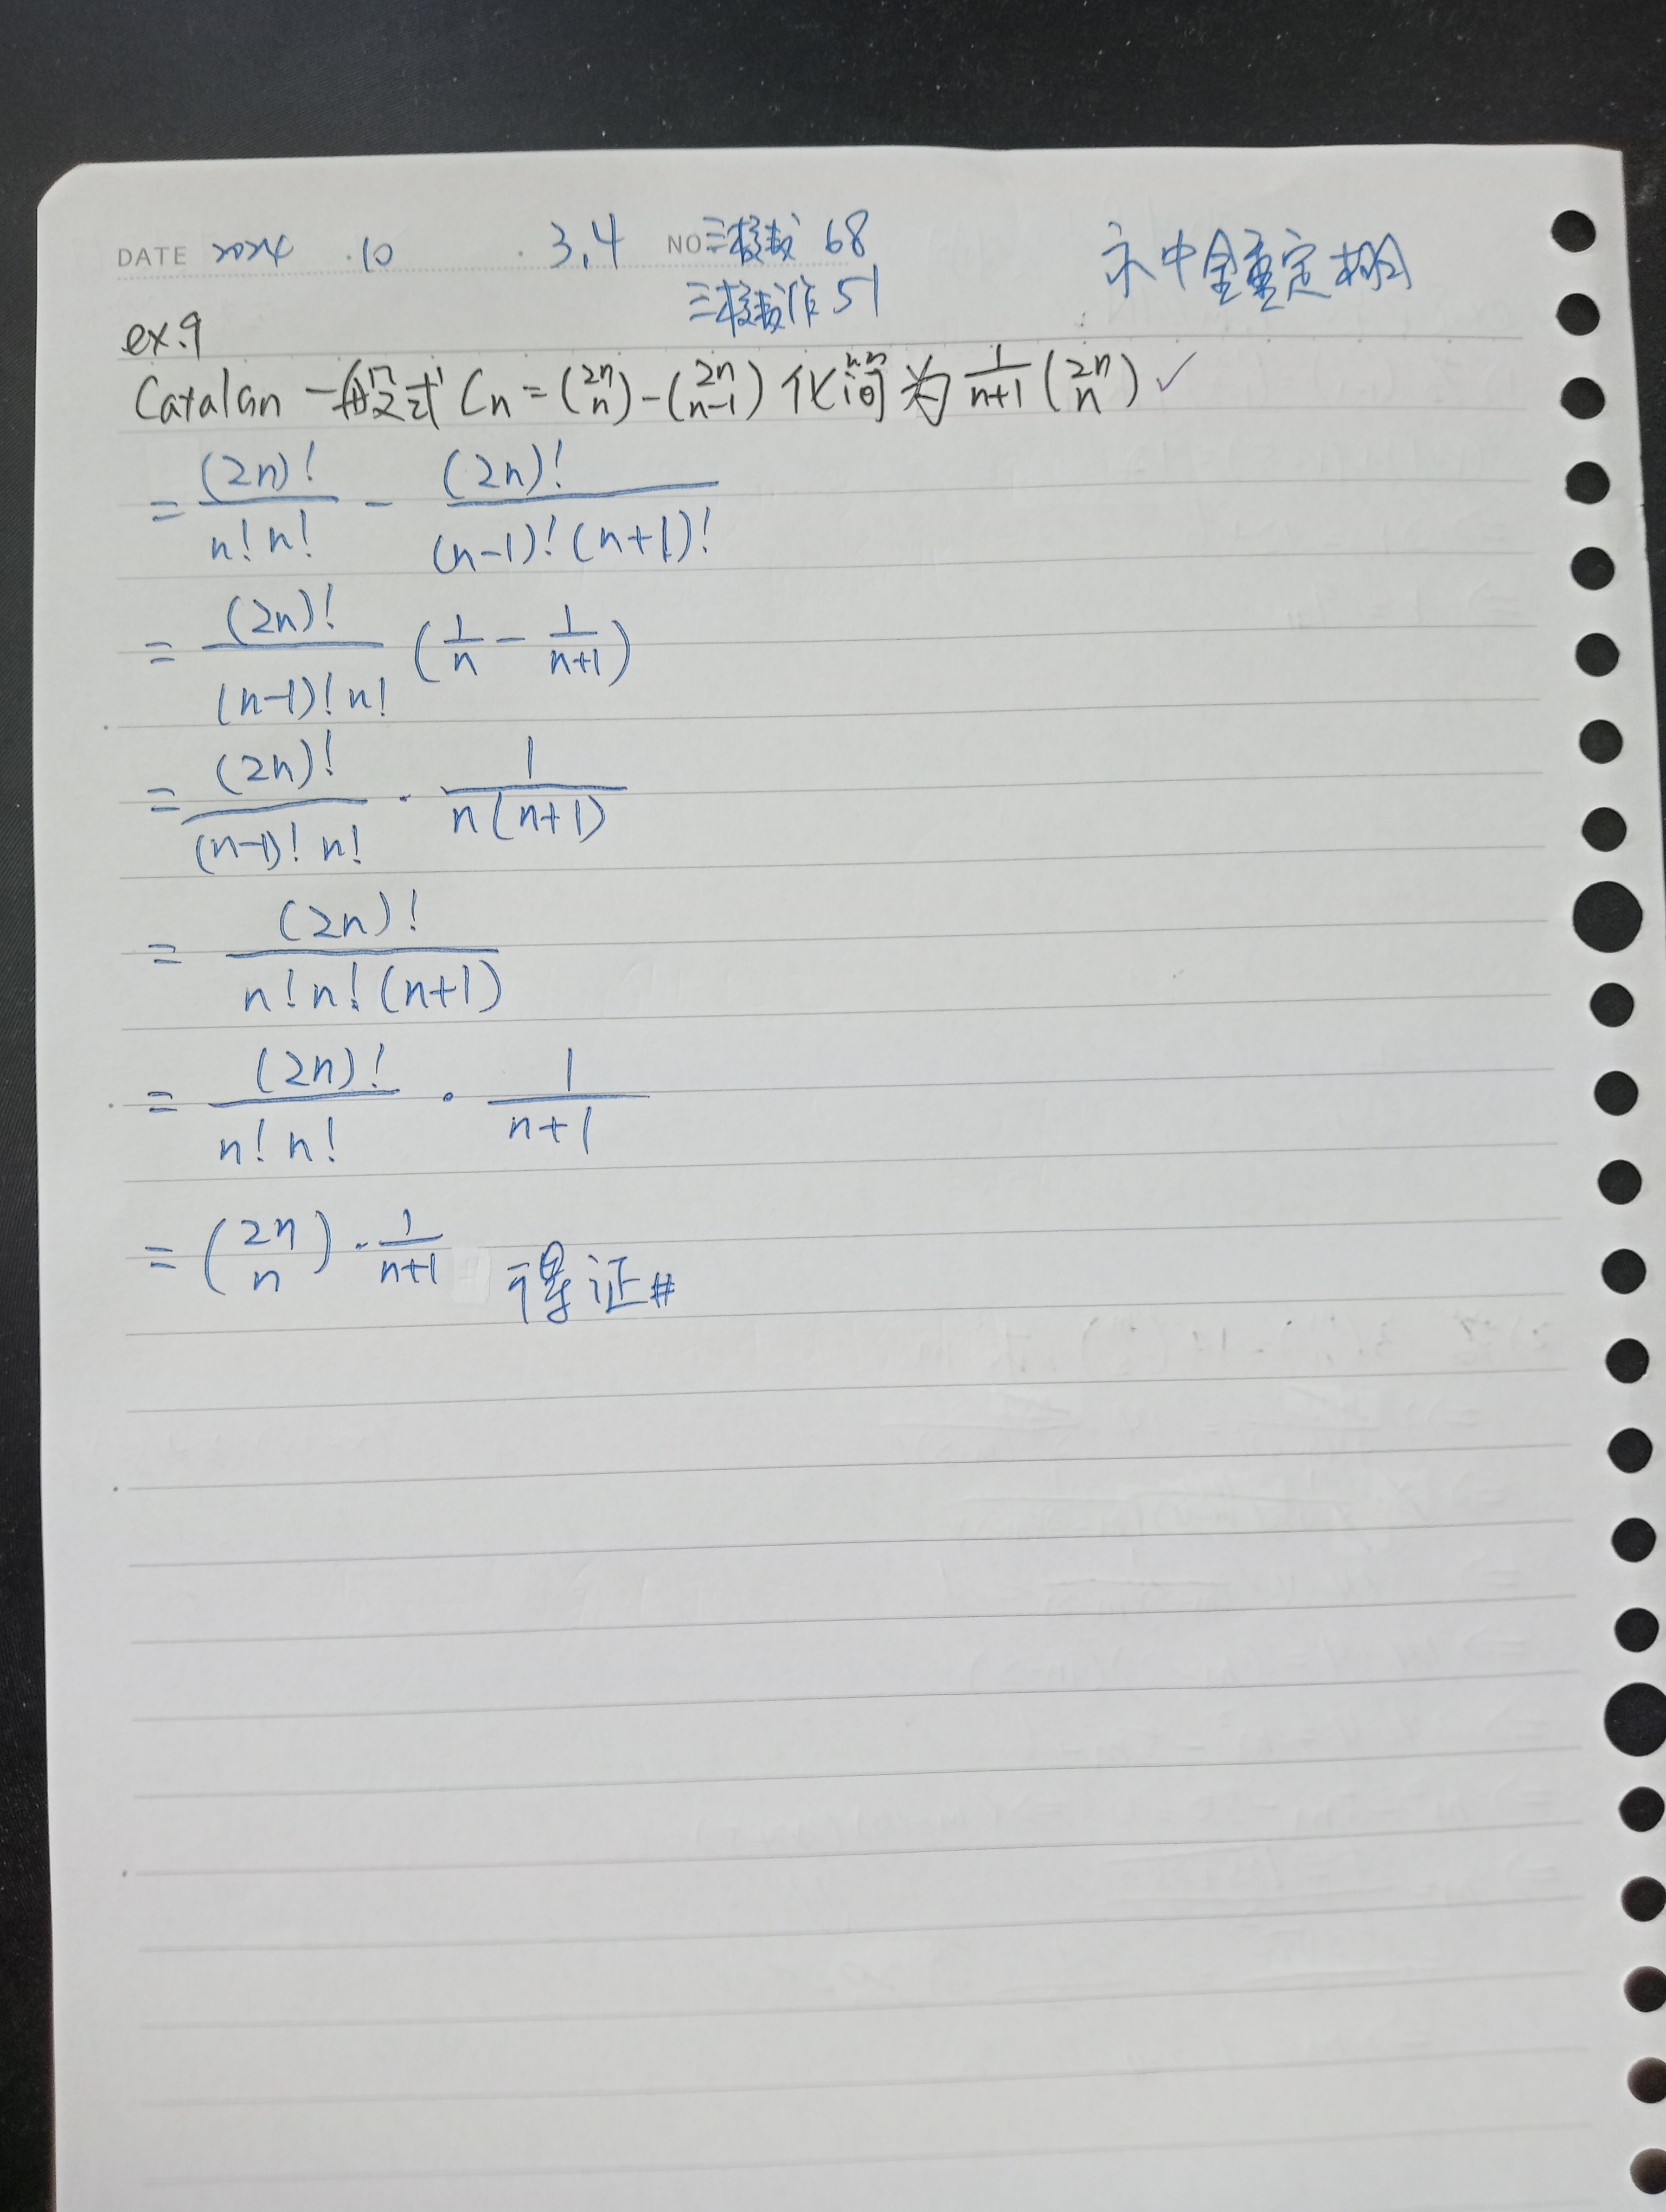 DATE 2024 .10 . 3,4 NO 三校赦 68
三校赦作 51
ex.9
Catalan 一般式 Cn = (2n n) - (2n n-1) 化简为 1/(n+1) (2n n) ✓
= (2n)!/(n! n!) - (2n)!/((n-1)! (n+1)!)
= (2n)!/((n-1)! n!) (1/n - 1/(n+1))
= (2n)!/((n-1)! n!) · 1/(n(n+1))
= (2n)!/(n! n! (n+1))
= (2n)!/(n! n!) · 1/(n+1)
= (2n n) · 1/(n+1) 得证 #